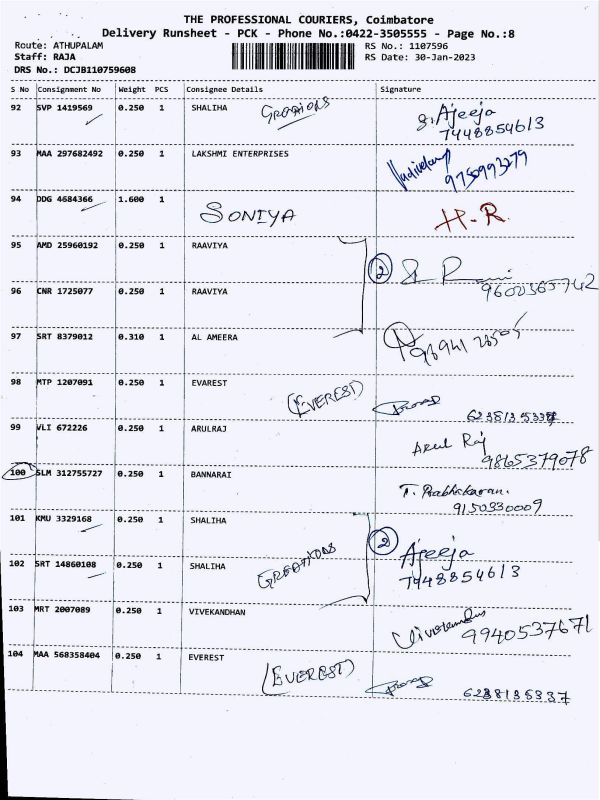 THE PROFESSIONAL COURIERS, Coimbatore
Delivery Runsheet - PCK - Phone No.:0422-3505555 - Page No.:8
Route: ATHUPALAM RS No.: 1107596
Staff: RAJA RS Date: 30-Jan-2023
DRS No.: DCJB110759608
S No Consignment No Weight PCS Consignee Details Signature
92 SVP 1419569 0.250 1 SHALIHA Ajeeja
7448854613
93 MAA 297682492 0.250 1 LAKSHMI ENTERPRISES
9750993279
94 DDG 4684366 1.600 1 SONIYA H.R.
95 AMD 25960192 0.250 1 RAAVIYA 2
96 CNR 1725077 0.250 1 RAAVIYA
97 SRT 8379012 0.310 1 AL AMEERA
98 MTP 1207091 0.250 1 EVAREST (EVEREST)
99 VLI 672226 0.250 1 ARULRAJ Arul Raj
9865379078
100 SLM 312755727 0.250 1 BANNARAI T. Prabhakaran.
9150330009
101 KMU 3329168 0.250 1 SHALIHA 2 Ajeeja
102 SRT 14860108 0.250 1 SHALIHA CREATIONS 7448854613
103 MRT 2007089 0.250 1 VIVEKANDHAN
9940537671
104 MAA 568358404 0.250 1 EVEREST (EVEREST)
6238135337